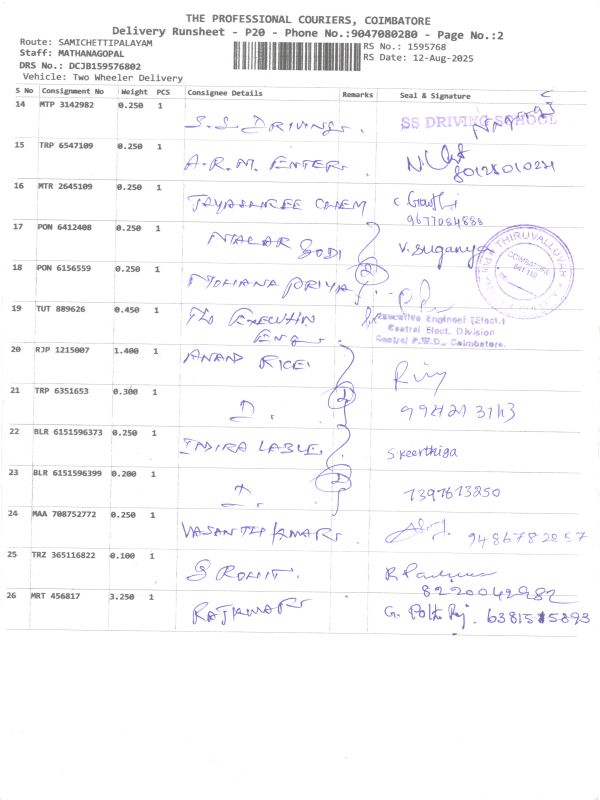 THE PROFESSIONAL COURIERS, COIMBATORE
Delivery Runsheet - P20 - Phone No.:9047080280 - Page No.:2
Route: SAMICHETTIPALAYAM
Staff: MATHANAGOPAL
DRS No.: DCJB159576802
Vehicle: Two Wheeler Delivery
RS No.: 1595768
RS Date: 12-Aug-2025
S No Consignment No Weight PCS Consignee Details Remarks Seal & Signature
14 MTP 3142982 0.250 1 S.S. DRIVING. SS DRIVING SCHOOL
15 TRP 6547109 0.250 1 A.R.M. ENTER.
16 MTR 2645109 0.250 1 JAYASHREE CHEM
9677084888
17 PON 6412408 0.250 1 V. Suganya
THIRUVALLUVAR
COIMBATORE
18 PON 6156559 0.250 1 MOHANA PRIYA 2
19 TUT 889626 0.450 1 Executive Engineer (Elect.)
Central Elect. Division
Central P.W.D., Coimbatore.
20 RJP 1215007 1.400 1 ANAND RICE.
21 TRP 6351653 0.300 1 D. 2
22 BLR 6151596373 0.250 1 INDIRA LABLE. S. Keerthiga
23 BLR 6151596399 0.200 1 D. 2 7397613250
24 MAA 708752772 0.250 1 VASANTH KMAR. 9486782857
25 TRZ 365116822 0.100 1 S ROHIT.
8220042982
26 MRT 456817 3.250 1 RAJKMAR